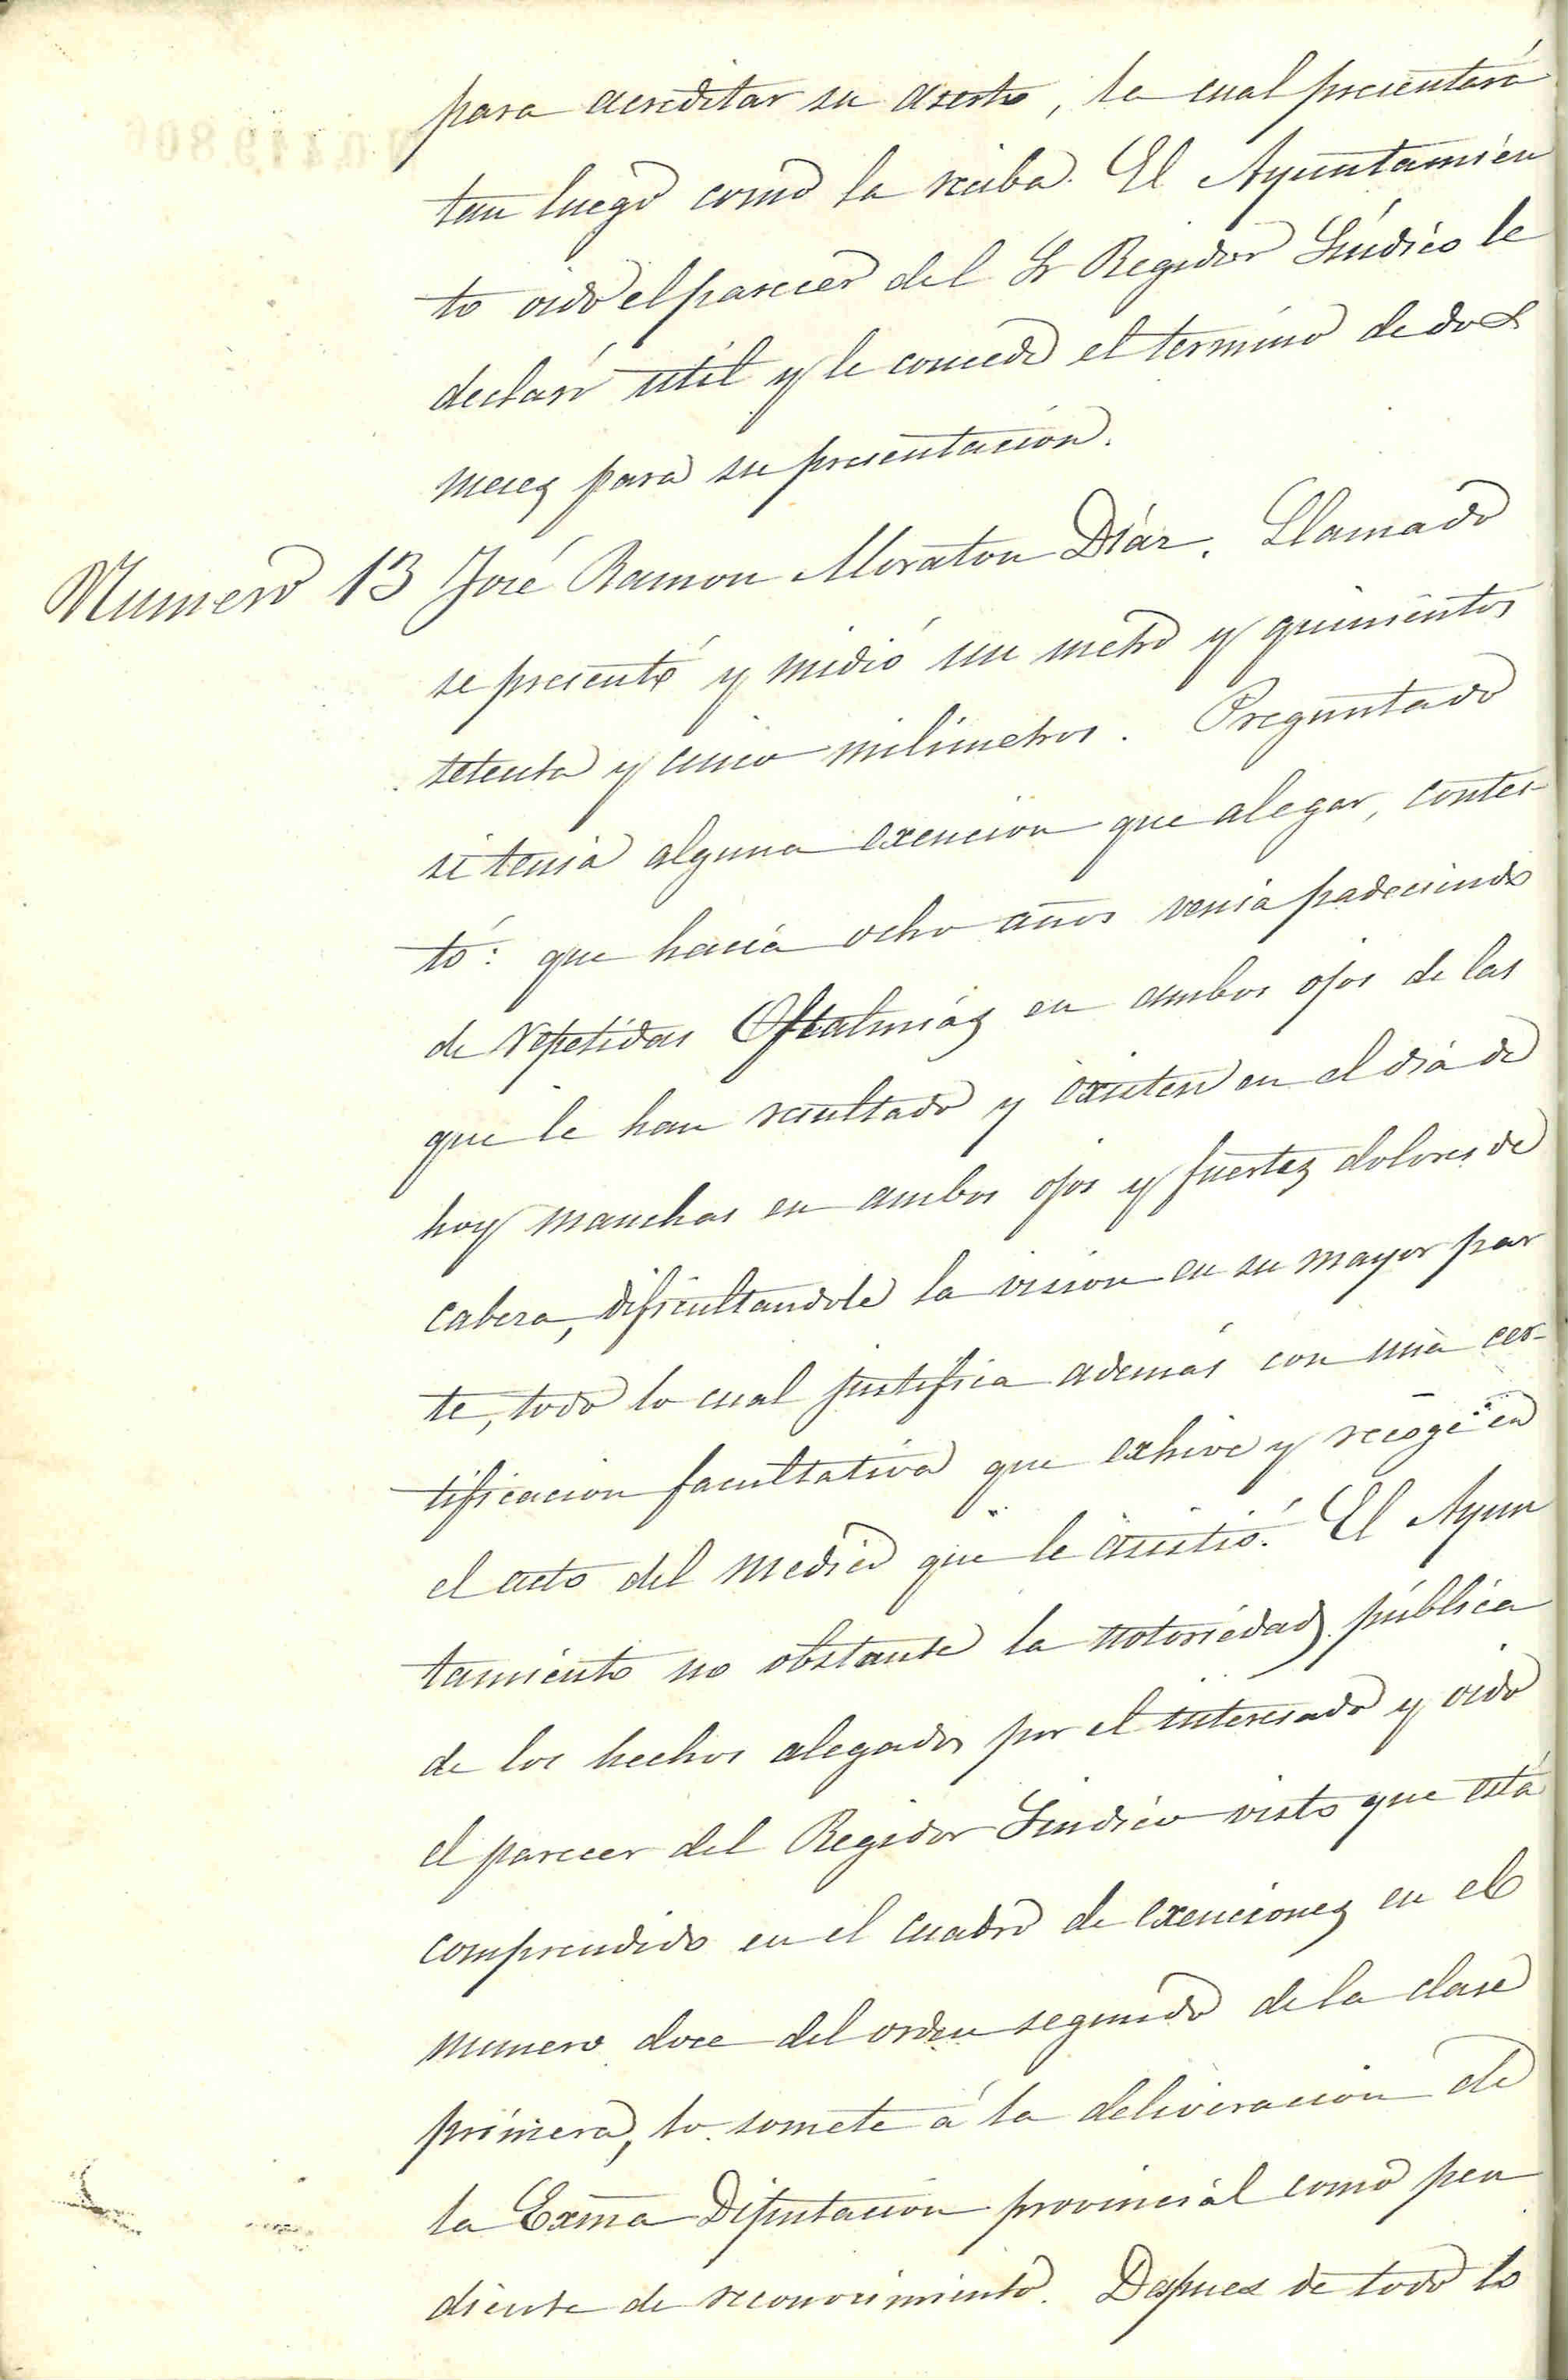 para acreditar su aserto, la cual presentará
tan luego como la reciba. El Ayuntamien
to oido el parecer del Sr Regidor Síndico le
declaró util y le concede el termino de dos
mecez para su presentacion.
Numero 13 José Ramon Moraton Diáz. Llamado
se presentó y midió un metro y quinientos
setenta y cinco milimetros. Preguntado
si tenia alguna exencion que alegar, contes-
tó: que hacia ocho años venia padeciendo
de repetidas Oftalmiaz en ambos ojos de las
que le han resultado y existen en el dia de
hoy manchas en ambos ojos y fuertez dolores de
cabeza, dificultandole la vision en su mayor par
te, todo lo cual justifica además con una cer-
tificacion facultativa que exhive y recoge en
el acto del medico que le asistió. El Ayun
tamiento no obstante la notoriedad pública
de los hechos alegados por el interesado y oido
el parecer del Regidor Sindico visto que está
comprendido en el cuadro de exencionez en el
numero doce del orden segundo de la clase
primera, lo somete á la deliveracion de
la Exma Diputacion provincial como pen
diente de reconocimiento. Despues de todo lo